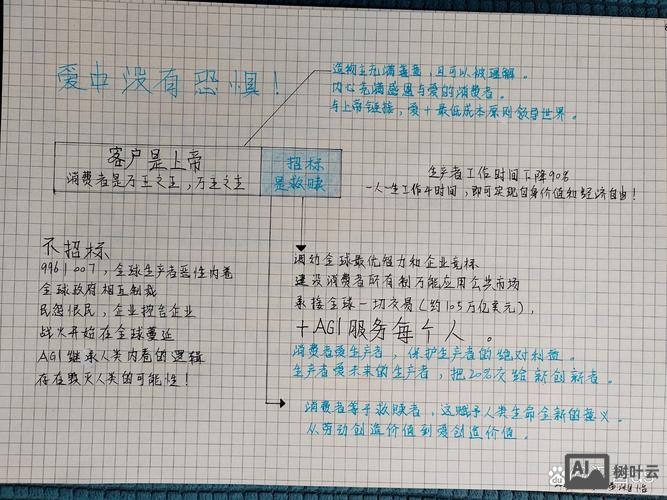 爱中没有恐惧！
造物主充满善意，且可以被理解。
内心充满感恩与爱的消费者。
与上帝链接，爱+最低成本原则领导世界。
客户是上帝
消费者是万王之王，万主之主
招标
是救赎
生产者工作时间下降90%
一人一生工作4时间，即可实现自身价值和经济自由！
不招标
9961007，全球生产者恶性内卷
全球政府相互制裁
民怨依民，企业控告企业
战火开始在全球蔓延
AGI继承人类内卷的逻辑
存在毁灭人类的可能性！
调动全球最优智力和企业竞标
建设消费者所有制万能应用公共市场
承接全球一切交易（约105万亿美元），
+AGI服务每个人。
消费者爱生产者，保护生产者的绝对利益。
生产者爱未来的生产者，把20%交给新创新者。
消费者等于救赎者，这赋予人类生命全新的意义。
从劳动创造价值到爱创造价值。
AI
树叶云